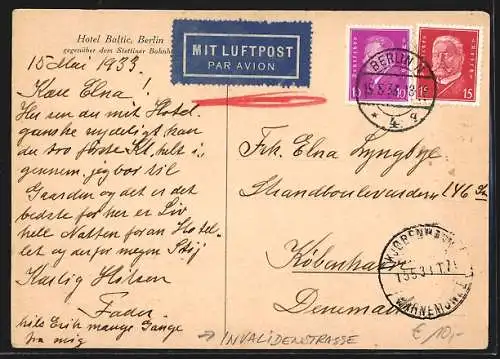 Hotel Baltic, Berlin
gegenüber dem Stettiner Bahnhof
MIT LUFTPOST
PAR AVION
15 Mai 1933
Kære Elna!
Her ser du mit Hotel
ganske nydeligt kan
du tro første Kl, helt i-
gennem, jeg bor til
Gaarden og det er det
bedste for her er Liv
hele Natten foran Hotel-
let og derfor megen Støj
Kærlig Hilsen
Fader
hils Erik mange Gange
fra mig
10
15
15
BERLIN
4 q
Frk. Elna Lyngbye
Strandboulevarden 146
København
Denemark
KJØBENHAVN
→ INVALIDENSTRASSE
€ 10,-